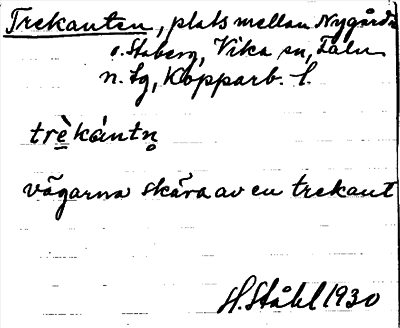 Trekanten, plats mellan Nygårds
o. Staberg, Vika sn, Falu
n. lg, Kopparb. l.
trè̠kántn̥
vägarna skära av en trekant
H. Ståhl 1930